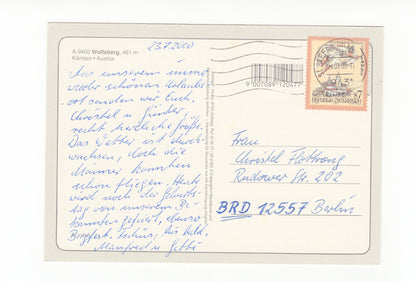 A-9400 Wolfsberg, 461 m
Kärnten • Austria
23.7.2000
Aus unserem immer
wieder schönen Urlaubs-
ort senden wir Euch,
Christel u. Günter
recht herzliche Grüße.
Das Wetter ist durch-
wachsen, doch die
Männer konnten
schon fliegen. Heute
wird noch der Geburts-
tag von unserem Be-
kannten gefeiert, ebenso
Bergfest. Tschüs, bis bald,
Manfred u. Gitti
9 007089 120477
REPUBLIK ÖSTERREICH
S7
Frau
Christel
Rudower Str. 202
BRD 12557 Berlin